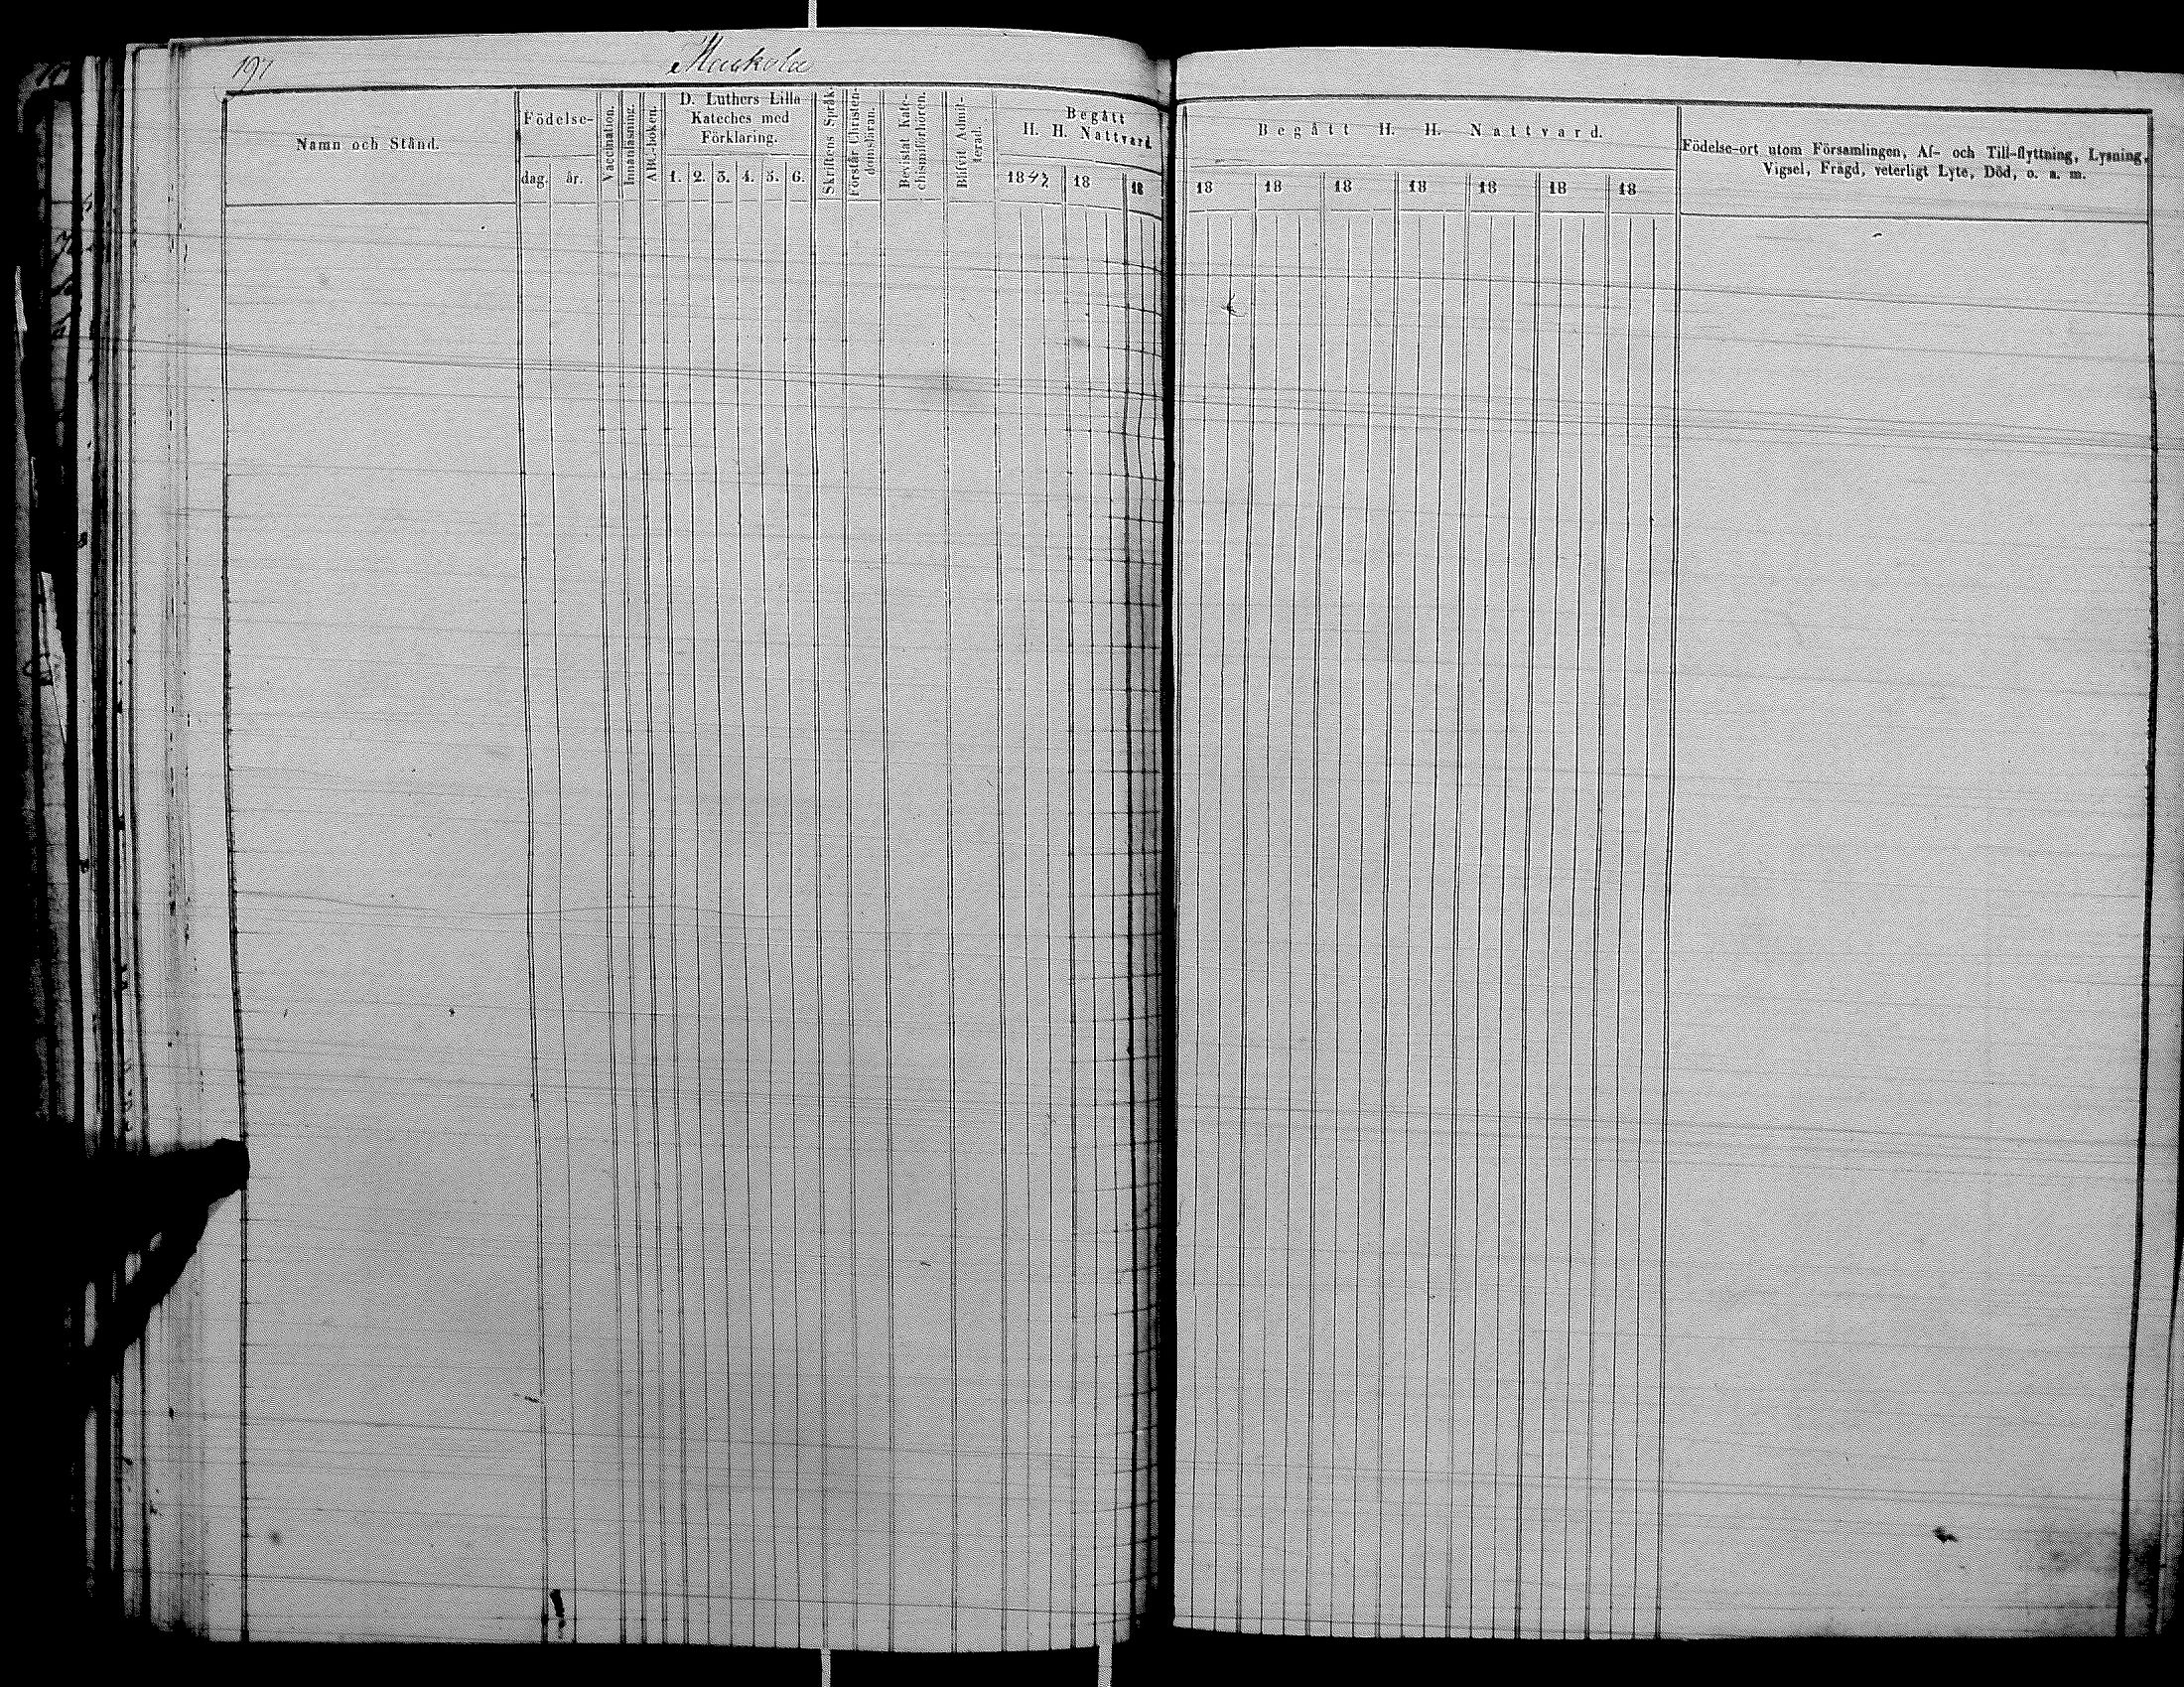 197
Maskola
Namn och Stånd.
Födelse-
dag. år.
Vaccination.
Innanläsning.
ABC-boken.
D. Luthers Lilla
Kateches med
Förklaring.
1. 2. 3. 4. 5. 6.
Skriftens Språk.
Förstår Christen-
domsläran.
Bevistat Kate-
chismiförhören.
Blifvit Admit-
terad.
Begått
H. H. Nattvard
18 18 18
Begått H. H. Nattvard.
18 18 18 18 18 18 18
Födelse-ort utom Församlingen, Af- och Till-flyttning, Lysning,
Vigsel, Frägd, veterligt Lyte, Död, o. s. m.